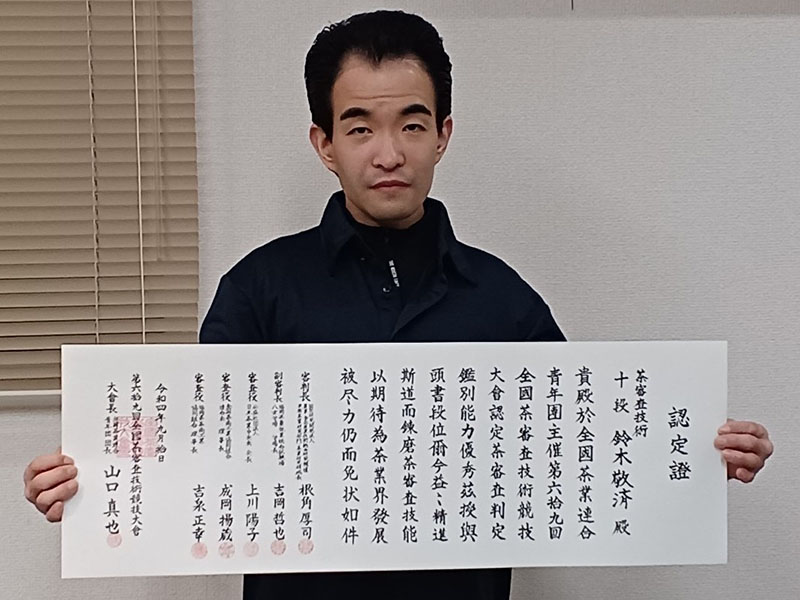 認定證
茶審査技術
十段 鈴木敬済 殿
貴殿於全國茶業連合
青年團主催第六拾九回
全國茶審査技術競技
大會認定茶審査判定
鑑別能力優秀茲授與
頭書段位爾今益〻精進
斯道而錬磨茶審査技能
以期待為茶業界發展
被尽力仍而免状如件
審判長
根角厚司
副審判長
吉岡哲也
審査役
上川陽子
審査役
成岡揚蔵
審査役
吉泉正幸
令和四年九月拾日
第六拾九回全國茶審査技術競技大會
大會長
山口真也